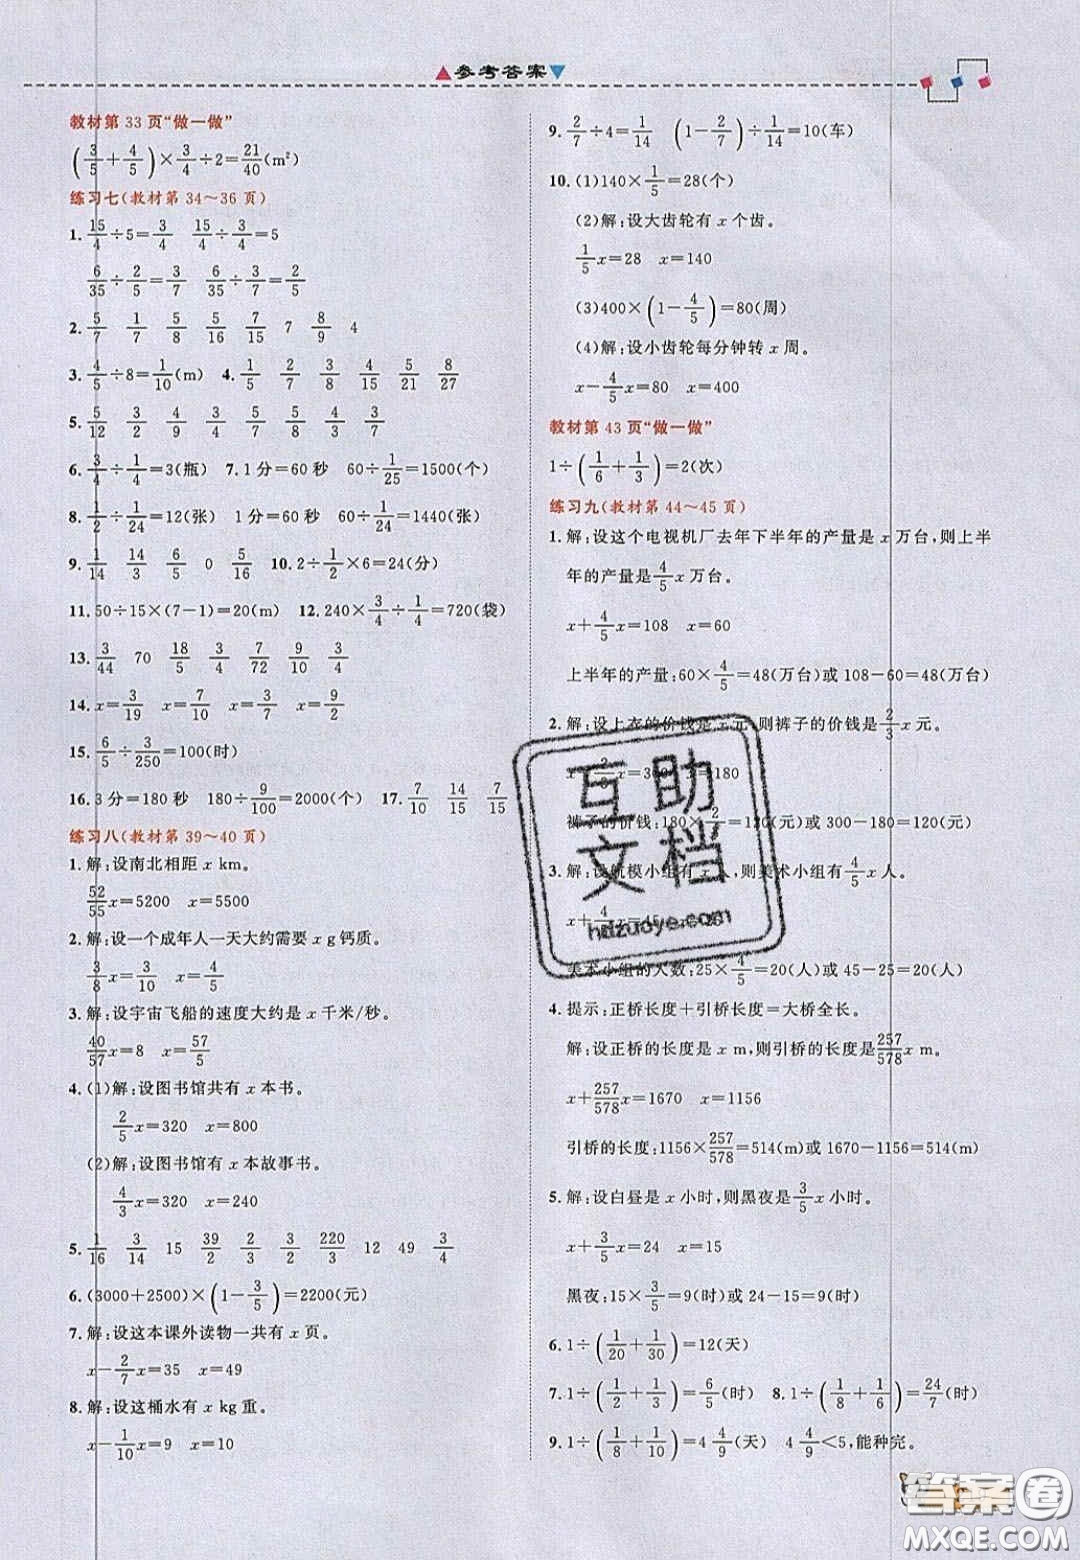 参考答案
教材第 33 页“做一做”
(3/5+4/5)×3/4÷2=21/40(m²)
练习七(教材第 34～36 页)
1. 15/4÷5=3/4 15/4÷3/4=5
6/35÷2/5=3/7 6/35÷3/7=2/5
2. 5/7 1/7 5/8 5/16 7/15 7 8/9 4
3. 4/5÷8=1/10(m) 4. 1/5 2/7 3/8 4/15 5/21 8/27
5. 5/12 3/2 4/9 3/4 5/7 5/8 5/6
6. 3/4÷1/4=3(瓶) 7. 1 分=60 秒 60÷1/25=1500(个)
8. 1/2÷1/24=12(张) 1 分=60 秒 60÷1/24=1440(张)
9. 1/14 14/3 6/5 0 5/16 10. 2÷1/2×6=24(分)
11. 50÷15×(7-1)=20(m) 12. 240×3/4÷1/4=720(袋)
13. 3/44 70 18/5 3/4 7/72 9/10 3/4
14. x=3/19 x=7/10 x=9/2
15. 6/5÷3/250=100(时)
16. 3 分=180 秒 180÷9/100=2000(个) 17. 7/10 14/15 7/5
练习八(教材第 39～40 页)
1. 解:设南北相距 x km。
52/55x=5200 x=5500
2. 解:设一个成年人一天大约需要 x g 钙质。
3/8x=3/10 x=4/5
3. 解:设宇宙飞船的速度大约是 x 千米/秒。
40/57x=8 x=57/5
4. (1)解:设图书馆共有 x 本书。
2/5x=320 x=800
(2)解:设图书馆有 x 本故事书。
4/3x=320 x=240
5. 1/16 3/14 15 39/2 2/3 3/2 220/3 12 49 3/4
6. (3000+2500)×(1-3/5)=2200(元)
7. 解:设这本课外读物一共有 x 页。
x-2/7x=35 x=49
8. 解:设这桶水有 x kg 重。
x-1/10x=9 x=10
9. 2/7÷4=1/14 (1-2/7)÷1/14=10(车)
10. (1)140×1/5=28(个)
(2)解:设大齿轮有 x 个齿。
1/5x=28 x=140
(3)400×(1-4/5)=80(周)
(4)解:设小齿轮每分钟转 x 周。
x-4/5x=80 x=400
教材第 43 页“做一做”
1÷(1/6+1/3)=2(次)
练习九(教材第 44～45 页)
1. 解:设这个电视机厂去年下半年的产量是 x 万台,则上半
年的产量是4/5x 万台。
x+4/5x=108 x=60
上半年的产量:60×4/5=48(万台)或 108-60=48(万台)
2. 解:设上衣的价钱是 x 元,则裤子的价钱是2/3x 元。
x+2/3x=300 x=180
裤子的价钱:180×2/3=120(元)或 300-180=120(元)
3. 解:设航模小组有 x 人,则美术小组有4/5x 人。
x+4/5x=45 x=25
美术小组的人数:25×4/5=20(人)或 45-25=20(人)
4. 提示:正桥长度+引桥长度=大桥全长。
解:设正桥的长度是 x m,则引桥的长度是257/578x m。
x+257/578x=1670 x=1156
引桥的长度:1156×257/578=514(m)或 1670-1156=514(m)
5. 解:设白昼是 x 小时,则黑夜是3/5x 小时。
x+3/5x=24 x=15
黑夜:15×3/5=9(时)或 24-15=9(时)
6. 1÷(1/20+1/30)=12(天)
7. 1÷(1/2+1/3)=6/5(时) 8. 1÷(1/8+1/6)=24/7(时)
9. 1÷(1/8+1/10)=4 4/9(天) 4 4/9<5,能种完。
互助
文档
hdzuoye.com
答案卷
MXQE.COM